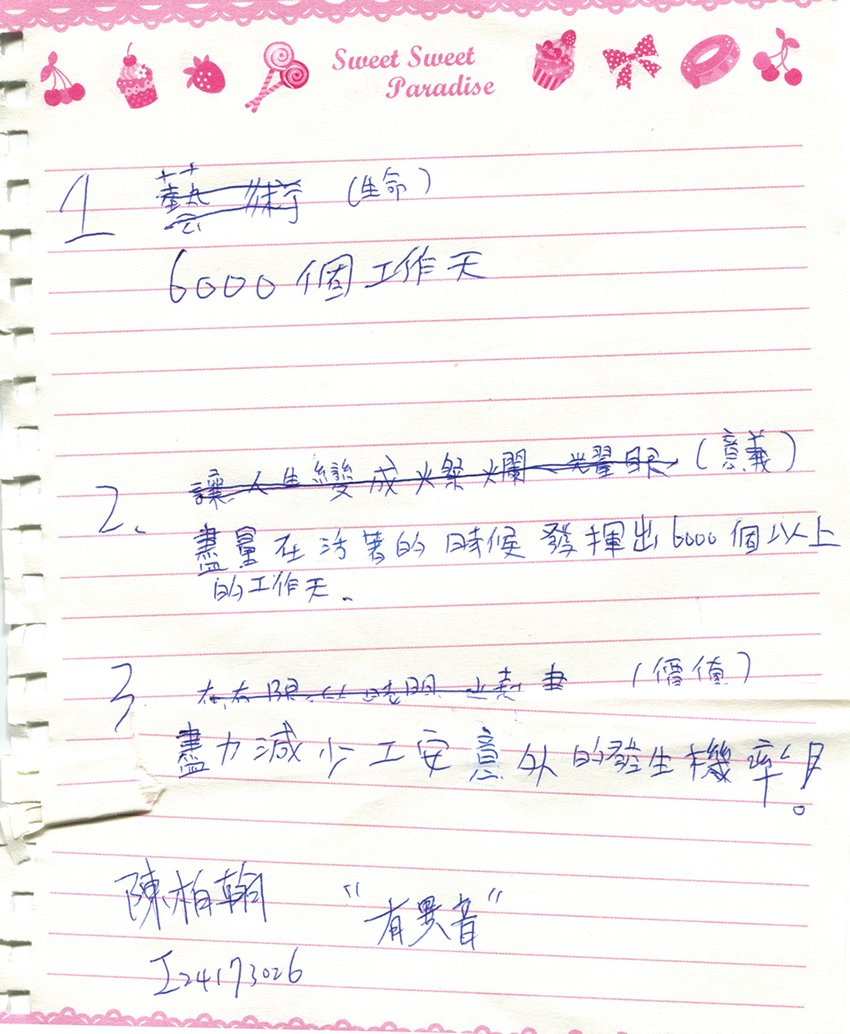 Sweet Sweet
Paradise
1 藝術 (生命)
6000個工作天
2. 讓人生變成燦爛耀眼 (意義)
盡量在活著的時候發揮出6000個以上
的工作天.
3. 在有限的時間 畫 (價值)
盡力減少工安意外的發生機率!
陳柏翰 “有異音”
I24173026